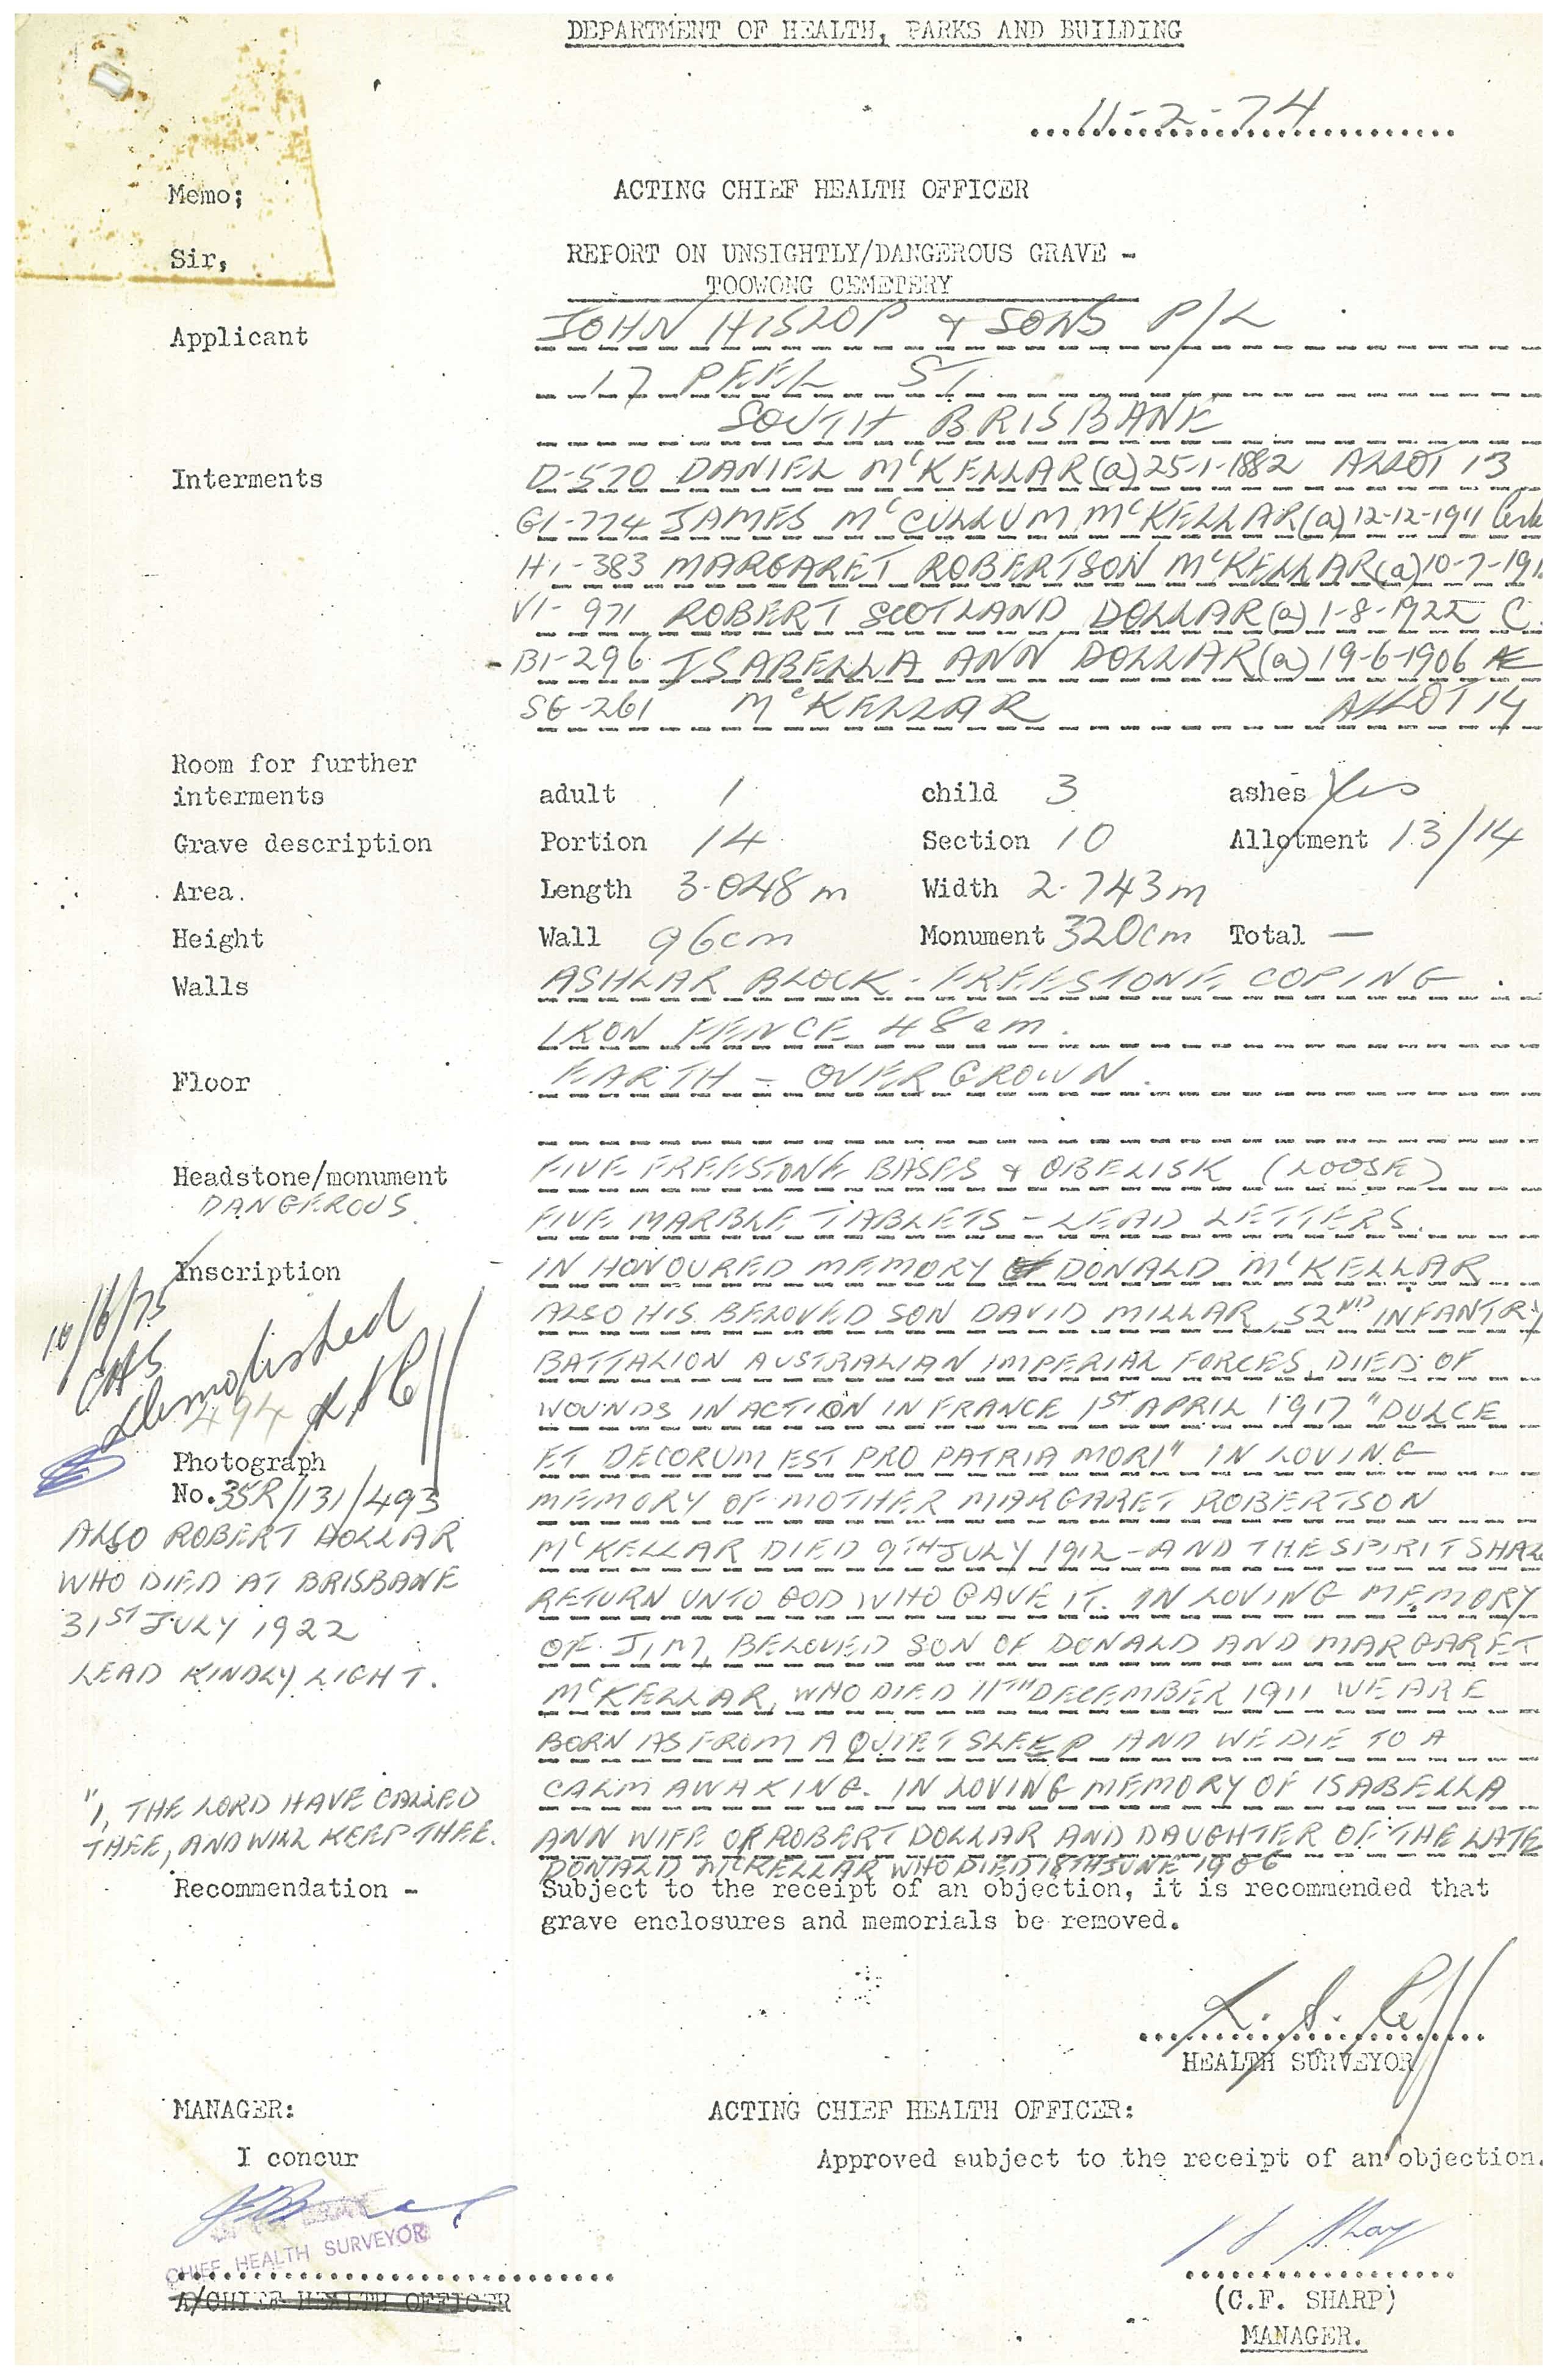 DEPARTMENT OF HEALTH, PARKS AND BUILDING
11-2-74
Memo; ACTING CHIEF HEALTH OFFICER
Sir, REPORT ON UNSIGHTLY/DANGEROUS GRAVE -
TOOWONG CEMETERY
Applicant JOHN HISLOP & SONS P/L
17 PEEL ST.
SOUTH BRISBANE
Interments D-570 DANIEL McKELLAR (a) 25-1-1882 ALLOT 13
G1-774 JAMES McCULLUM McKELLAR (a) 12-12-1911
H1-383 MARGARET ROBERTSON McKELLAR (a) 10-7-191
V1-971 ROBERT SCOTLAND DOLLAR (a) 1-8-1922 C.
B1-296 ISABELLA ANN DOLLAR (a) 19-6-1906
SG-261 McKELLAR ALLOT 14
Room for further
interments adult 1 child 3 ashes Yes
Grave description Portion 14 Section 10 Allotment 13/14
Area. Length 3.048 m Width 2.743 m
Height Wall 96cm Monument 320cm Total —
Walls ASHLAR BLOCK - FREESTONE COPING.
IRON FENCE 48cm.
Floor EARTH - OVERGROWN.
Headstone/monument FIVE FREESTONE BASES & OBELISK (LOOSE)
DANGEROUS FIVE MARBLE TABLETS - LEAD LETTERS.
Inscription IN HONOURED MEMORY OF DONALD McKELLAR
ALSO HIS BELOVED SON DAVID MILLAR, 52ND INFANTRY
BATTALION AUSTRALIAN IMPERIAL FORCES, DIED OF
WOUNDS IN ACTION IN FRANCE 1ST APRIL 1917 "DULCE
ET DECORUM EST PRO PATRIA MORI" IN LOVING
MEMORY OF MOTHER MARGARET ROBERTSON
McKELLAR DIED 9TH JULY 1912 - AND THE SPIRIT SHALL
RETURN UNTO GOD WHO GAVE IT. IN LOVING MEMORY
OF JIM, BELOVED SON OF DONALD AND MARGARET
McKELLAR, WHO DIED 11TH DECEMBER 1911 WE ARE
BORN AS FROM A QUIET SLEEP AND WE DIE TO A
CALM AWAKING. IN LOVING MEMORY OF ISABELLA
ANN WIFE OF ROBERT DOLLAR AND DAUGHTER OF THE LATE
DONALD McKELLAR WHO DIED 18TH JUNE 1906
10/6/75
CHS
Demolished
494
Photograph
No. 35R/131/493
ALSO ROBERT DOLLAR
WHO DIED AT BRISBANE
31ST JULY 1922
LEAD KINDLY LIGHT.
"I, THE LORD HAVE CALLED
THEE, AND WILL KEEP THEE.
Recommendation - Subject to the receipt of an objection, it is recommended that
grave enclosures and memorials be removed.
HEALTH SURVEYOR
MANAGER: ACTING CHIEF HEALTH OFFICER:
I concur Approved subject to the receipt of an objection.
CHIEF HEALTH SURVEYOR
A/CHIEF HEALTH OFFICER
(C.F. SHARP)
MANAGER.